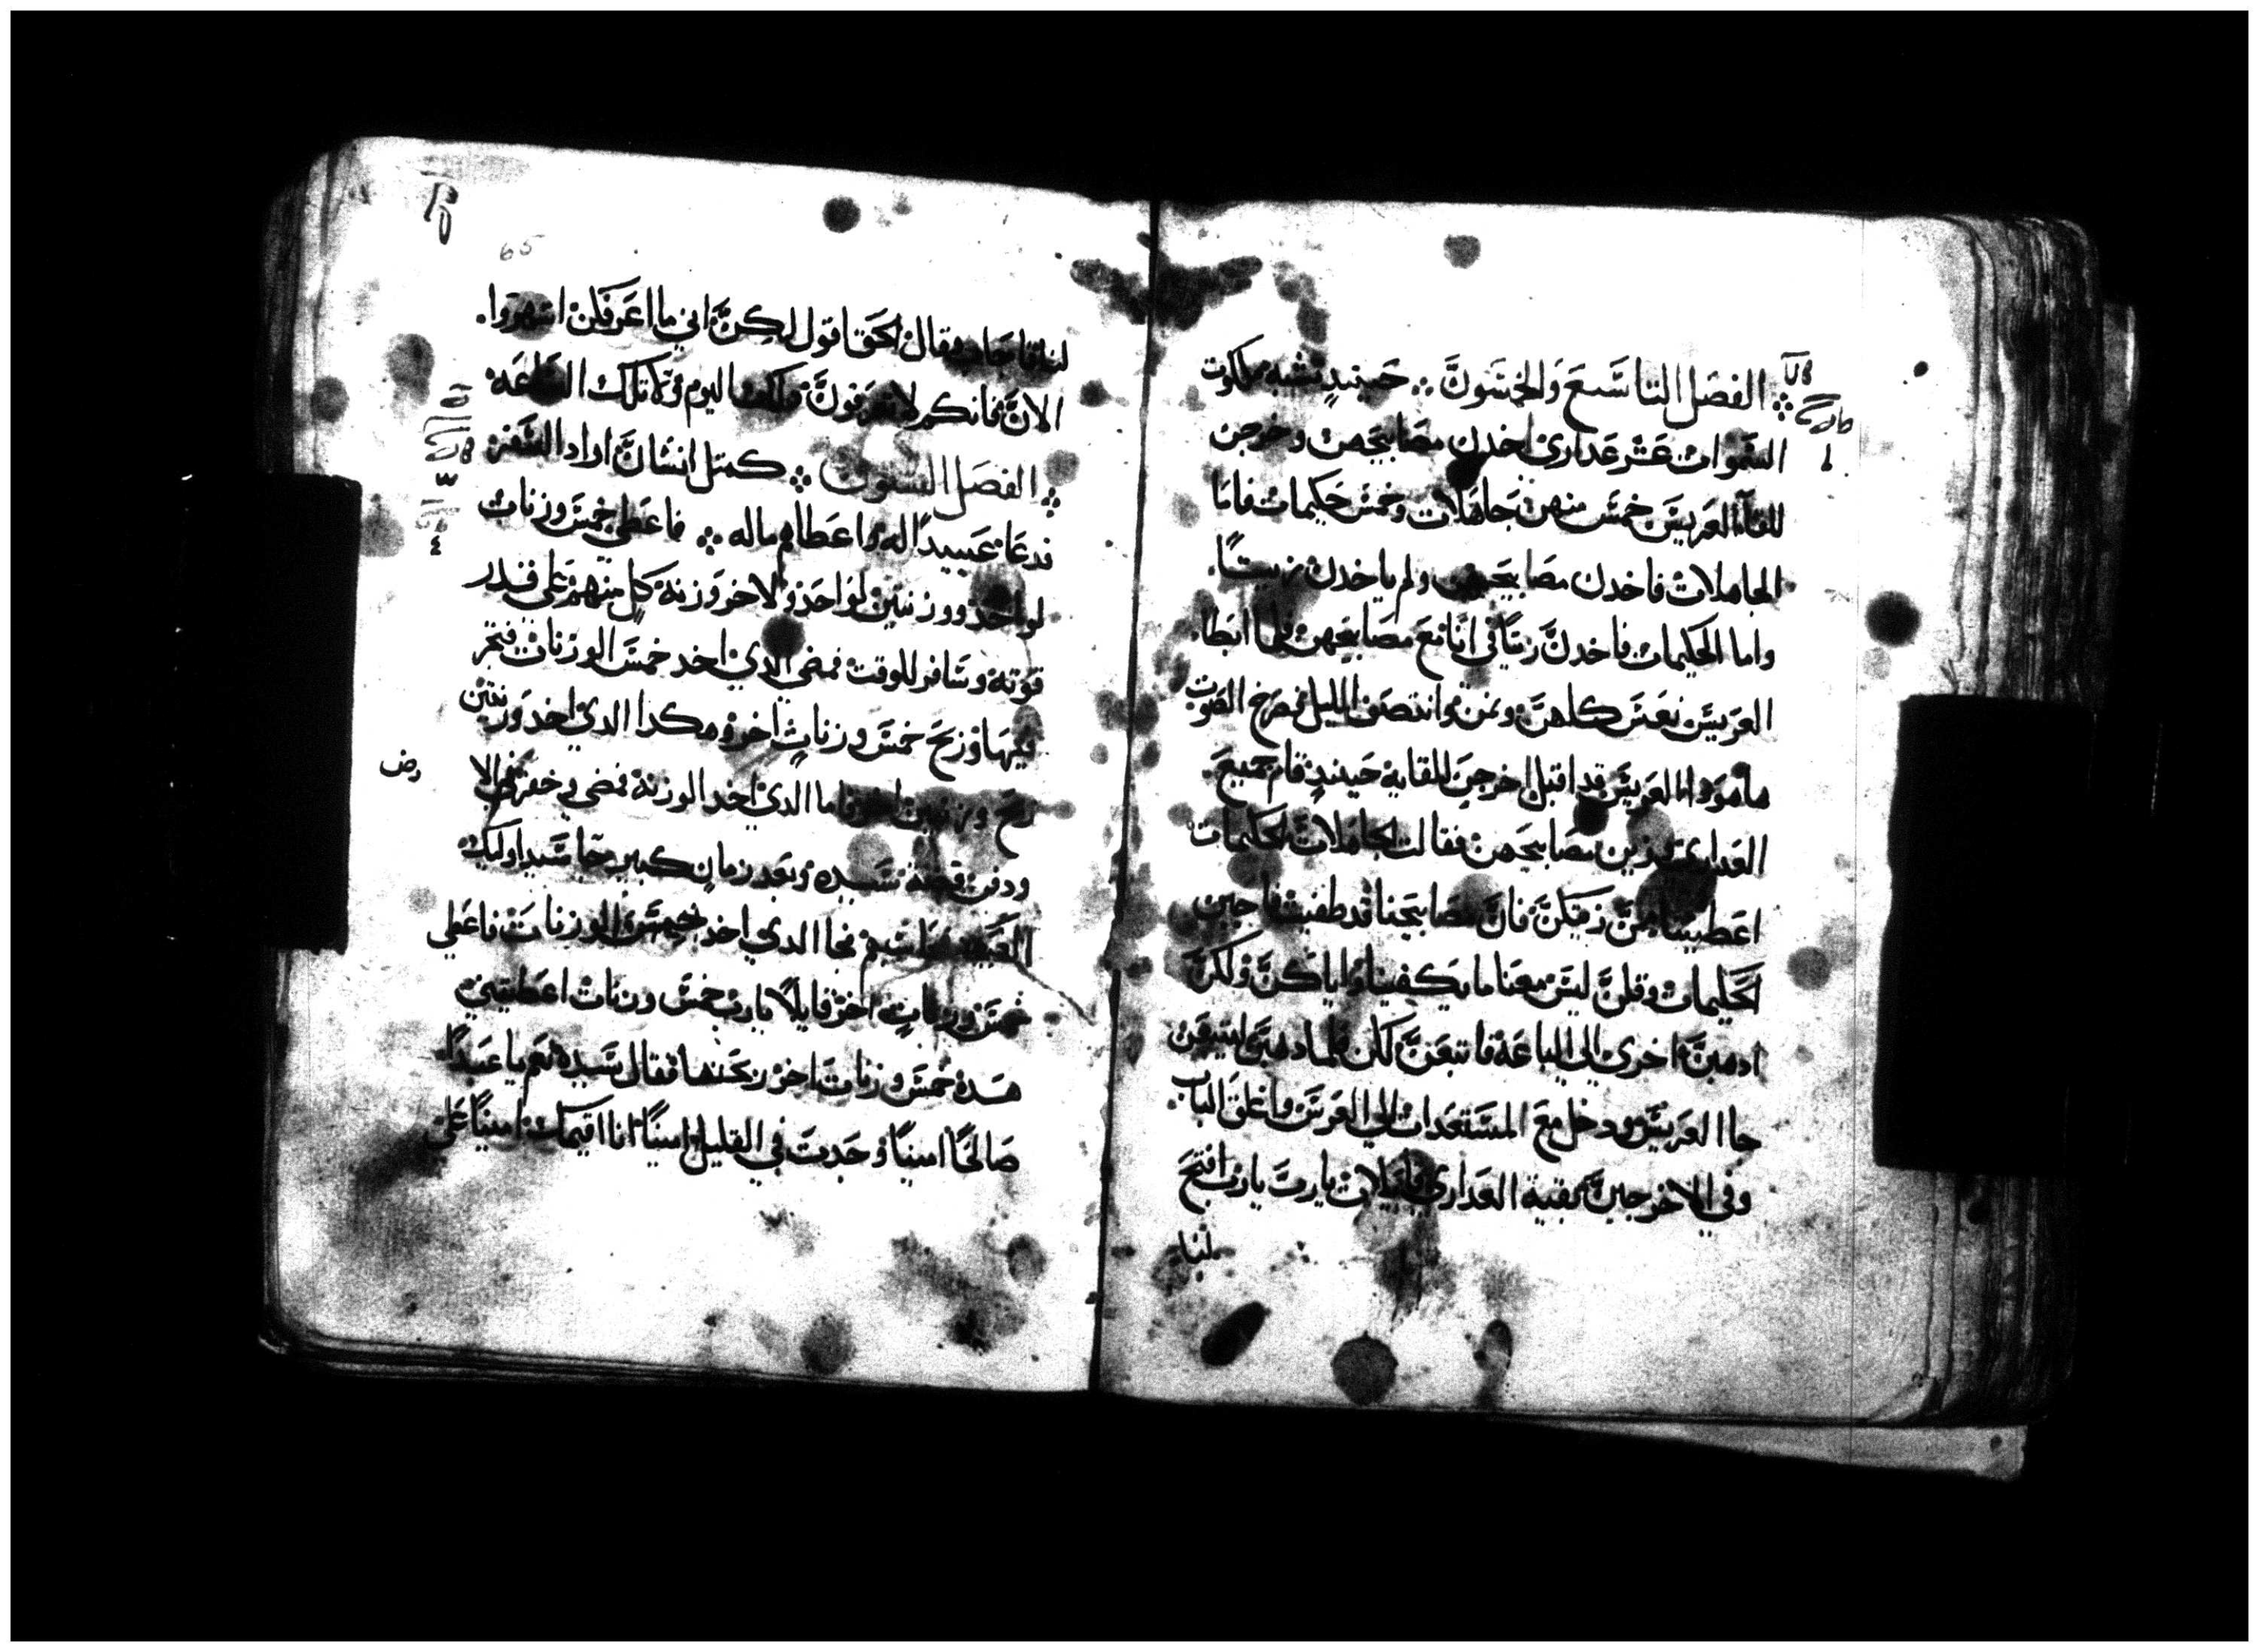 الفصَل التاسَّعَ وَالخمسَونَّ ∴ حَينيدٍ تشبه ملكوت
السَموات عَشر عَداري اخدن مصَابيحَهن وخرجن
للقآ العَريسَ خمسَ منهن جَاهَلات وخمسَ حَكيمات فامَا
الجاهلات فاخدن مصَابيحَهن ولم ياخدن زيتًا.
واما الحَكيمات فاخدنَّ زيتًا في انا مَع مصَابيحَهن فلما ابطا.
العَريسَ نعَسَ كلهنَّ ونمن وانتصف الليل فصَرخ الصَوت
هاهودا العَريسَ قد اقبل اخرجن للقايه حَينيدٍ قام جَميعَ
العَداري وزين مصَابيحَهن فقالت الجاهَلات للحَكيمات
اعَطيننا من زيتكنَّ فانَّ مصَابيحَنا قد طفيت فاجبن
الحَكيمات وقلنَّ ليسَ معَنا ما يكفينا واياكنَّ ولكنَّ
ادهبنَّ احَري الي الباعَة فابتعَنَّ لكن فلما دهبنَّ ليبتعَن
جا العَريسَ ودخل معَ المسَتعَدات الي العَرسَ واغلق الباب.
وفي الاخر جينَّ بقية العَداري قايلات يا ربَّ يا رب افتحَ
لنا
65
لنا فاجاب وقال الحَق اقول لكنَّ اني ما اعَرفكن اسَهروا.
الانَّ فانكم لا تعَرفونَّ دلك اليوم ولا تلك السَاعَه
الفصَل السَتون ∴ كمتل انسَانَّ اراد السَفر
فدعَا عَبيدًا له واعَطاهم ماله ∴ فاعَطي خمسَ وزنات
لواحَد ووزنتين لواحَد ولاخر وزنة كل منهم عَلي قدر
قوته وسَافر للوقت فمضي الدي اخد خمسَ الوزنات فتجر
فيها وربحَ خمسَ وزناتٍ اخر وهكدا الدي اخد وزنتين
ربحَ وزنتين اخر واما الدي اخد الوزنة فمضي وحفر في الا
رض
ودفن فضة سَيده وبعَد زمان كبير جا سَيد اوليك
العَبيد فحاسبهم فجا الدي اخد خمسَ الوزنات فاعَطي
خمسَ وزناتٍ اخر قايلًا يا رب خمسَ وزنات اعَطيتني
هَده خمسَ وزنات اخر ربحَتها فقال سَيده نعَم يا عَبدًا
صَالحًَا امينًا وُجَدتَ في القليل امينًا انا اقيمك امينًا عَلي